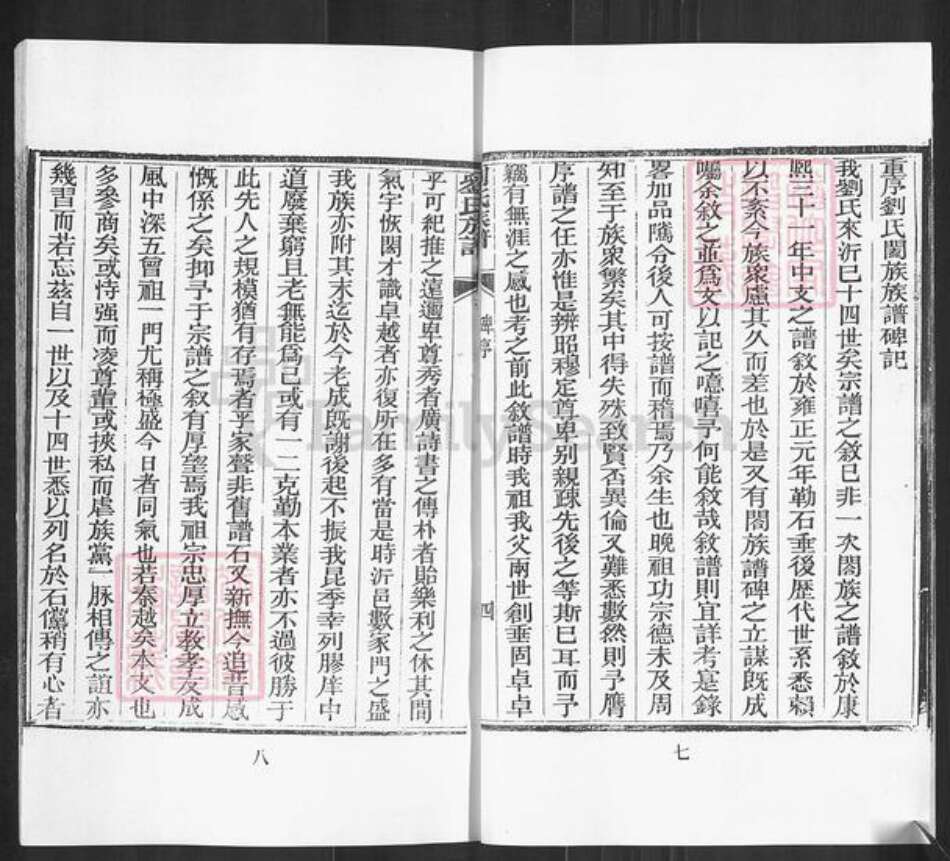 重序劉氏闔族族譜碑記
我劉氏來沂已十四世矣宗譜之敘已非一次闔族之譜敘於康
熙三十一年中支之譜敘於雍正元年勒石垂後歷代世系悉賴
以不紊今族眾慮其久而差也於是又有闔族譜碑之立謀既成
囑余敘之並爲文以記之噫嘻予何能敘哉敘譜則宜詳考寔錄
畧加品隲令後人可按譜而稽焉乃余生也晚祖功宗德未及周
知至于族眾繁矣其中得失殊致賢否異倫又難悉數然則予膺
序譜之任亦惟是辨昭穆定尊卑別親疎先後之等斯已耳而予
竊有無涯之感也考之前此敘譜時我祖我父兩世創垂固卓卓
劉氏族譜
碑序
四
乎可紀推之遠邇卑尊秀者廣詩書之傳朴者貽樂利之休其間
氣宇恢闊才識卓越者亦復所在多有當是時沂邑數家門之盛
我族亦附其末迄於今老成既謝後起不振我昆季幸列膠庠中
道廢棄窮且老無能爲已或有一二克勤本業者亦不過彼勝于
此先人之規模猶有存焉者乎家聲非舊譜石又新撫今追昔感
慨係之矣抑予于宗譜之叙有厚望焉我祖宗忠厚立教孝友成
風中深五曾祖一門尤稱極盛今日者同氣也若秦越矣本支也
多參商矣或恃強而凌尊輩或挾私而虐族黨一脉相傳之誼亦
幾習而若忘茲自一世以及十四世悉以列名於石儻稍有心者
七
八
FamilySearch